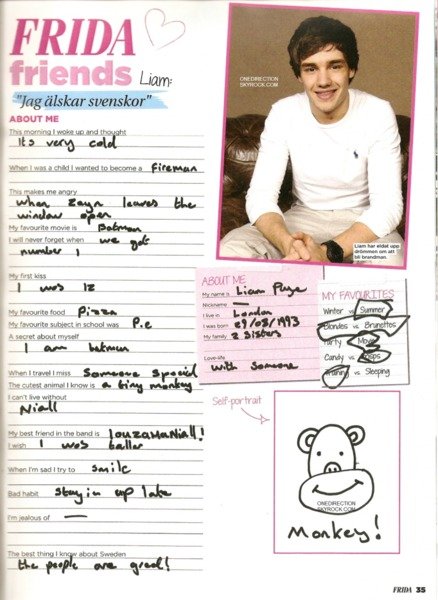 FRIDA
friends
Liam:
"Jag älskar svenskor"
ABOUT ME
This morning I woke up and thought
It's very cold
When I was a child I wanted to become a fireman
This makes me angry
when zayn leaves the
window open
My favourite movie is Batman
I will never forget when we got
number 1
My first kiss
I was 12
My favourite food Pizza
My favourite subject in school was P.e
A secret about myself
I am batman
When I travel I miss Someone special
The cutest animal I know is a tiny monkey
I can't live without
Niall
My best friend in the band is louzahaNiall!
I wish I was taller
When I'm sad I try to smile
Bad habit staying up late
I'm jealous of —
The best thing I know about Sweden
the people are great!
ONEDIRECTION
SKYROCK.COM
Liam har eldat upp
drömmen om att
bli brandman.
ABOUT ME
My name is Liam Payne
Nickname —
I live in London
I was born 29/08/1993
My family 2 sisters
Love-life
with someone
MY FAVOURITES
Winter vs Summer
Blondes vs Brunettes
Party Movie
Candy vs Crisps
Training vs Sleeping
Self-portrait
ONEDIRECTION
SKYROCK.COM
Monkey!
FRIDA 35